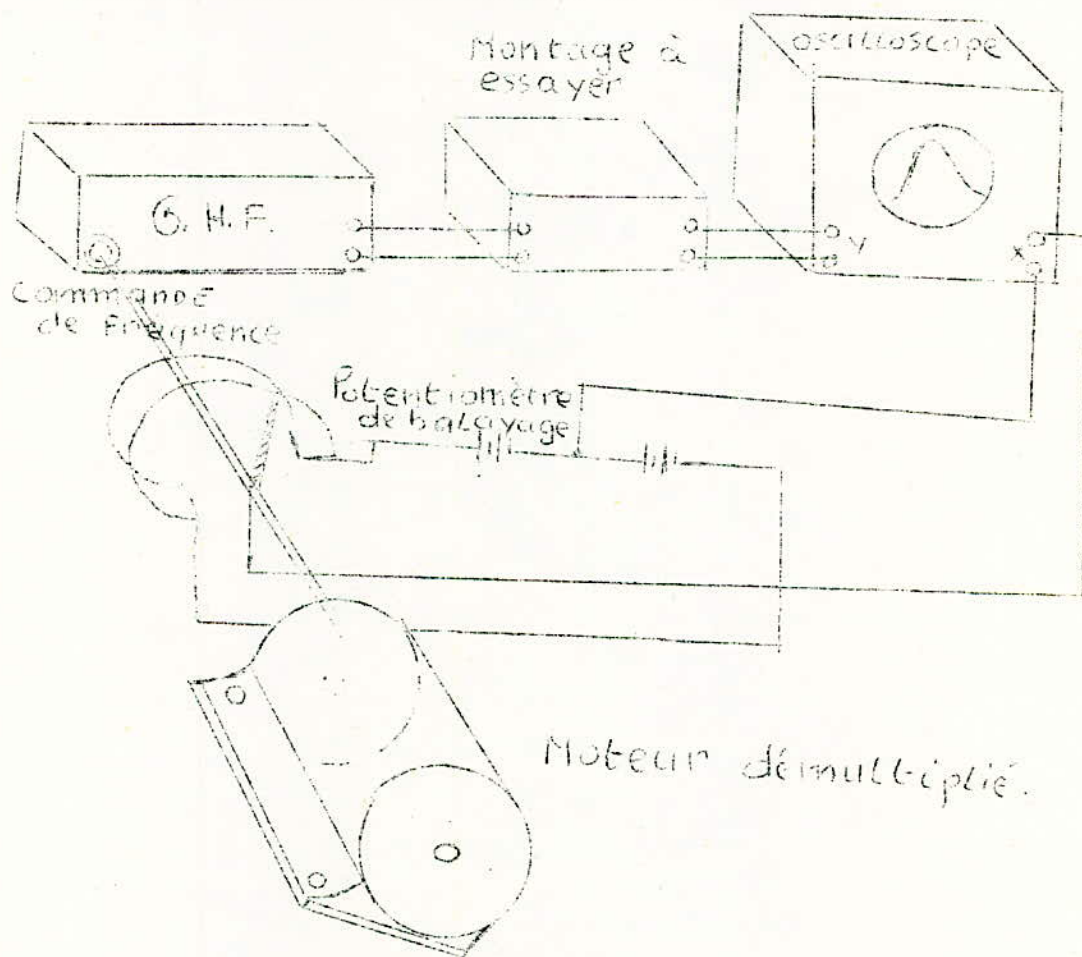 Montage à
essayer
oscilloscope
G.H.F.
Y
X
Commande
de Fréquence
Potentiomètre
de balayage
Moteur démultiplié.